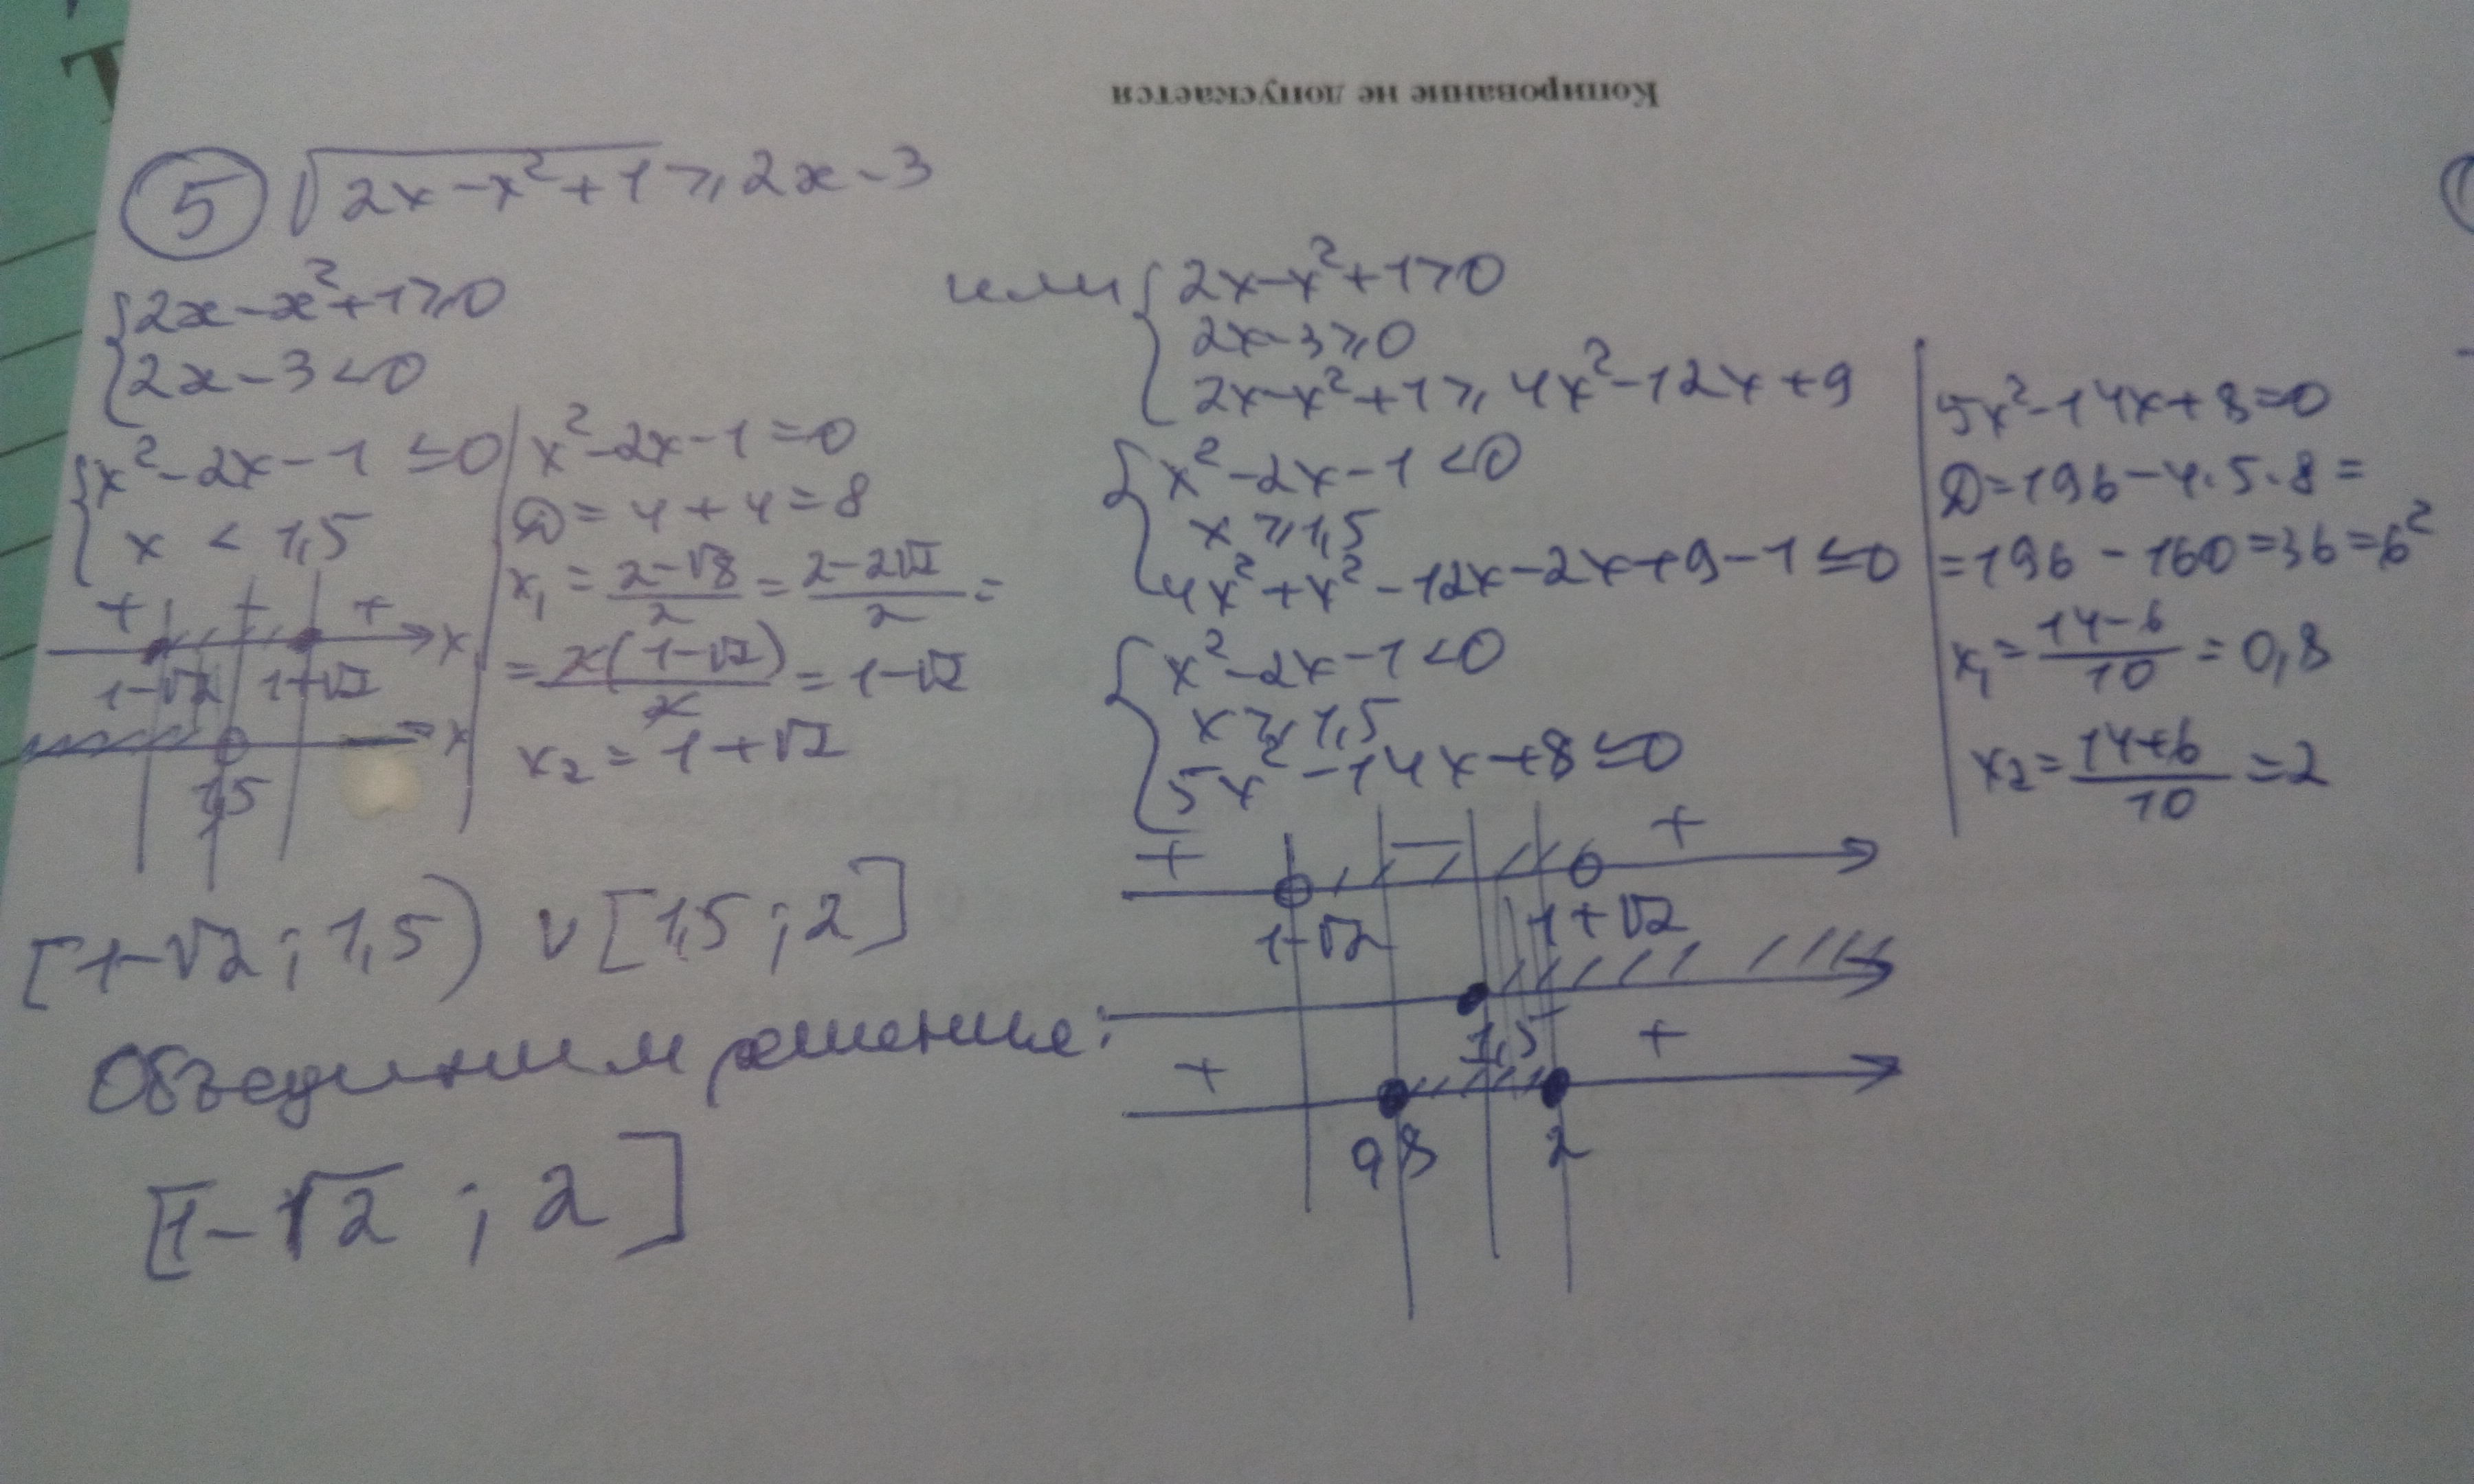 Копирование не допускается
5 √(2x-x²+1) ≥ 2x-3
{2x-x²+1≥0
2x-3<0
{x²-2x-1≤0
x<1,5
+ - + x
1-√2 1+√2
x
1,5
x²-2x-1=0
D=4+4=8
x₁=(2-√8)/2=(2-2√2)/2=
=2(1-√2)/2=1-√2
x₂=1+√2
или {2x-x²+1>0
2x-3≥0
2x-x²+1≥4x²-12x+9
{x²-2x-1<0
x≥1,5
4x²+x²-12x-2x+9-1≤0
{x²-2x-1<0
x≥1,5
5x²-14x+8≤0
5x²-14x+8=0
D=196-4·5·8=
=196-160=36=6²
x₁=(14-6)/10=0,8
x₂=(14+6)/10=2
+ - +
1-√2 1+√2
1,5
+ +
0,8 2
[1-√2; 1,5) ∪ [1,5; 2]
Объединим решение:
[1-√2; 2]